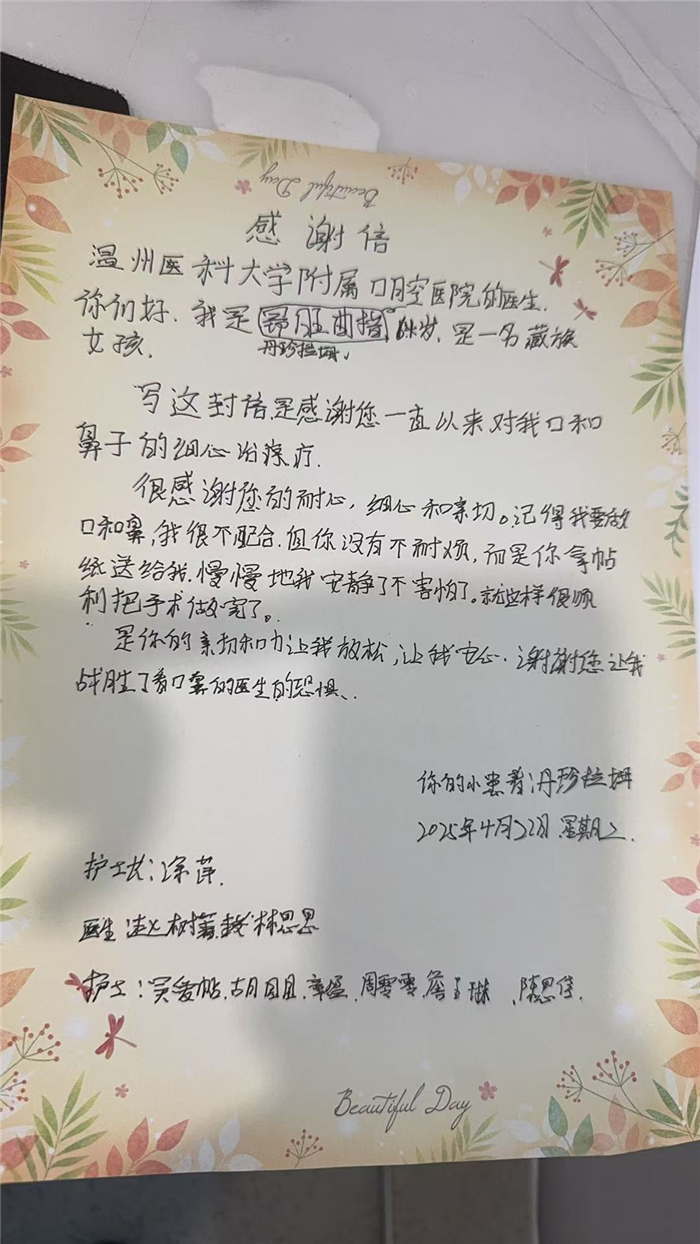 Beautiful Day
感谢信
温州医科大学附属口腔医院的医生.
你们好.我是 岁,是一名藏族
丹珍拉姆
女孩.
写这封信是感谢您一直以来对我口和
鼻子的细心治疗.
很感谢您的耐心,细心和亲切。记得我要做
口和鼻,我很不配合.但你没有不耐烦,而是你拿帖
纸送给我.慢慢地我安静了不害怕了。就这样很顺
利把手术做完了。
是你的亲切和力让我放松,让我安心.谢谢您让我
战胜了看口鼻的医生的恐惧、.
你的小患者:丹珍拉姆
2025年4月22日 星期二.
护士长:涂萍.
医生 赵树蕃 林思思
护士: 周雯雯. 陈思佳.
Beautiful Day